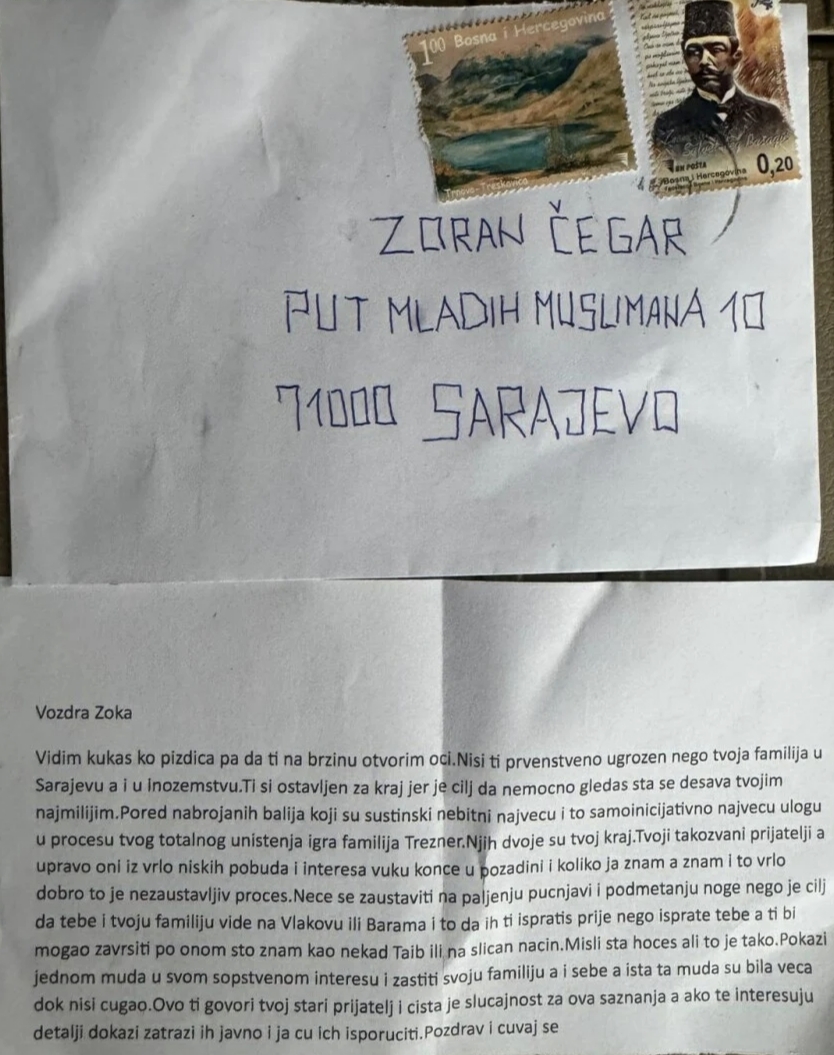 1⁰⁰ Bosna i Hercegovina
Trnovo-Treskavica
BH POŠTA
Bosna i Hercegovina
0,20
ZORAN ČEGAR
PUT MLADIH MUSLIMANA 10
71000 SARAJEVO
Vozdra Zoka
Vidim kukas ko pizdica pa da ti na brzinu otvorim oci.Nisi ti prvenstveno ugrozen nego tvoja familija u
Sarajevu a i u inozemstvu.Ti si ostavljen za kraj jer je cilj da nemocno gledas sta se desava tvojim
najmilijim.Pored nabrojanih balija koji su sustinski nebitni najvecu i to samoinicijativno najvecu ulogu
u procesu tvog totalnog unistenja igra familija Trezner.Njih dvoje su tvoj kraj.Tvoji takozvani prijatelji a
upravo oni iz vrlo niskih pobuda i interesa vuku konce u pozadini i koliko ja znam a znam i to vrlo
dobro to je nezaustavljiv proces.Nece se zaustaviti na paljenju pucnjavi i podmetanju noge nego je cilj
da tebe i tvoju familiju vide na Vlakovu ili Barama i to da ih ti ispratis prije nego isprate tebe a ti bi
mogao zavrsiti po onom sto znam kao nekad Taib ili na slican nacin.Misli sta hoces ali to je tako.Pokazi
jednom muda u svom sopstvenom interesu i zastiti svoju familiju a i sebe a ista ta muda su bila veca
dok nisi cugao.Ovo ti govori tvoj stari prijatelj i cista je slucajnost za ova saznanja a ako te interesuju
detalji dokazi zatrazi ih javno i ja cu ich isporuciti.Pozdrav i cuvaj se